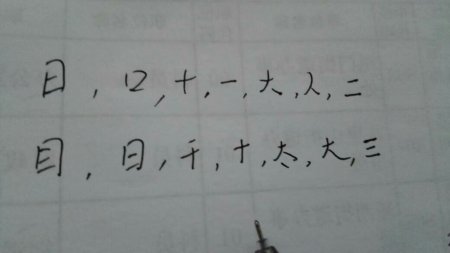 日，口，十，一，大，人，二
目，日，千，十，太，大，三